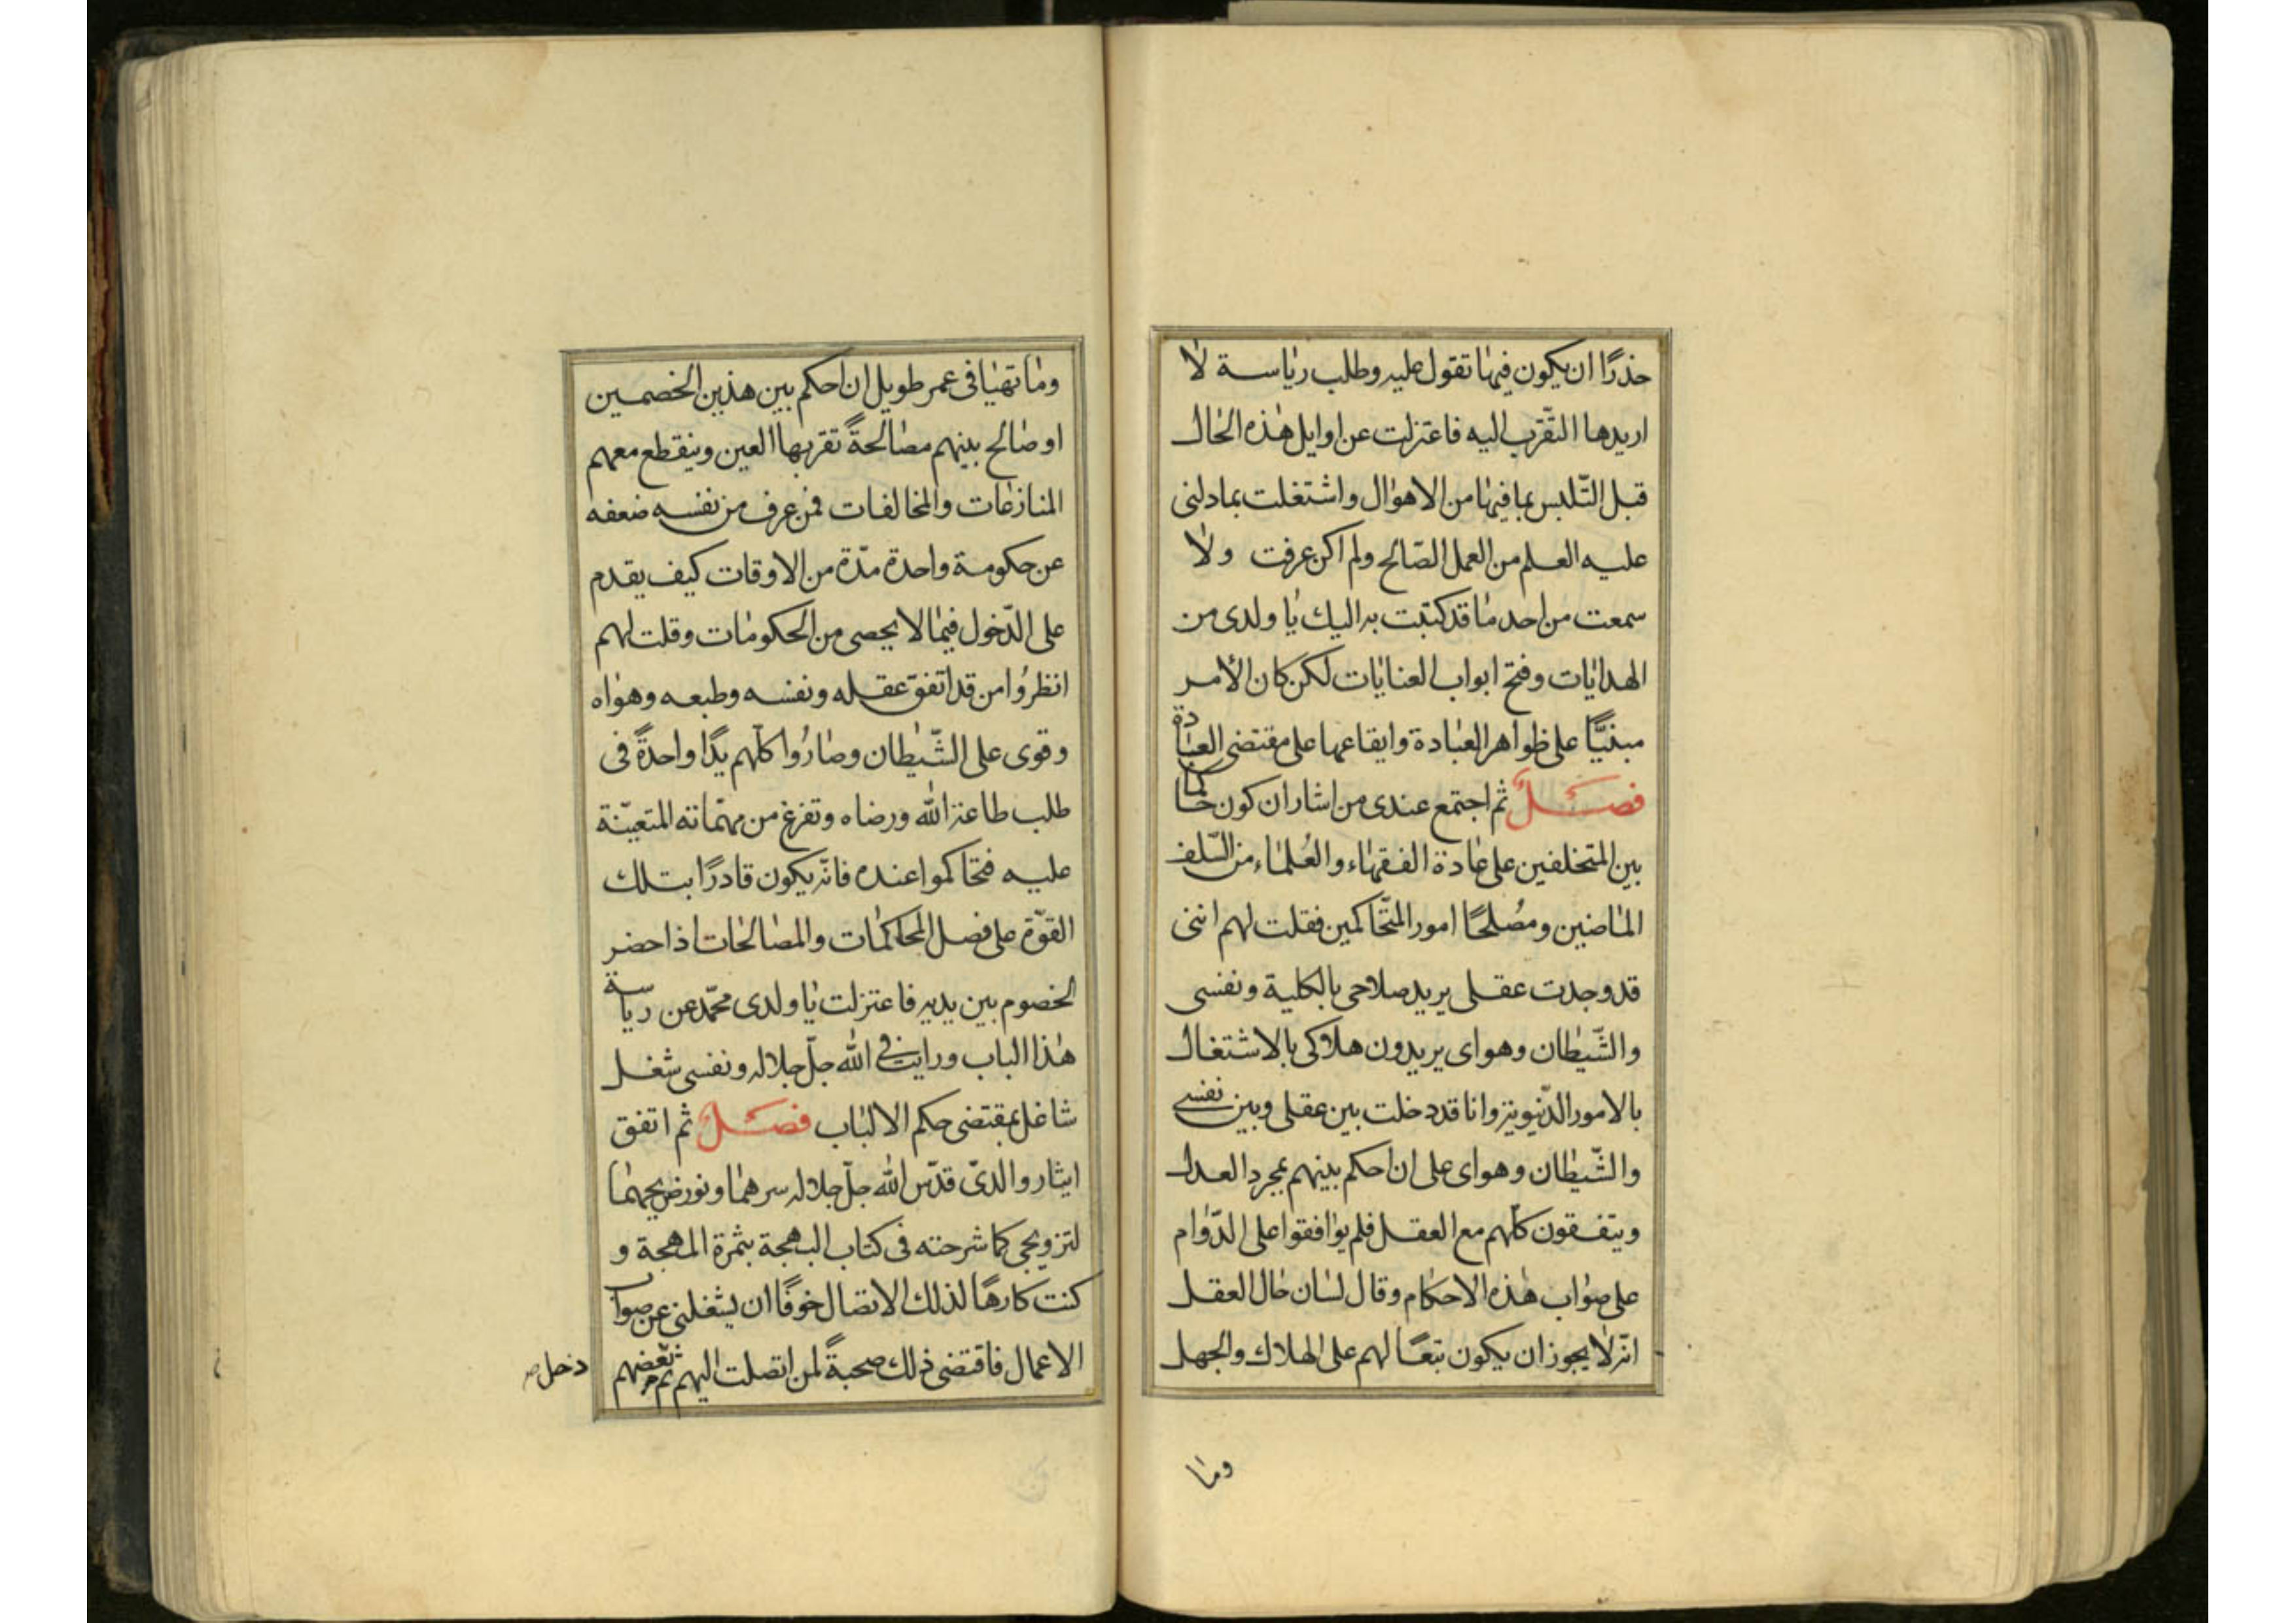 حذرًا ان يكون فيها تقول عليه وطلب رياسة لا
اريدها التقرب اليه فاعتزلت عن اوايل هذه الحال
قبل التّلبس بما فيها من الاهوال واشتغلت بما دلنى
عليه العلم من العمل الصّالح ولم اكن عرفت ولا
سمعت من احد ما قد كتبت به اليك يا ولدى من
الهدايات وفتح ابواب العنايات لكن كان الأمر
مبنيًّا على ظواهر العبادة وايقاعها على مقتضى العبادة
فصل ثم اجتمع عندى من اشار ان كون حاكما
بين المتخلفين على عادة الفقهاء والعُلماء من السّلف
الماضين ومُصلحًا امور المتّحاكمين فقلت لهم اننى
قد وجدت عقلى يريد صلاحى بالكلية ونفسى
والشّيطان وهواى يريدون هلاكى بالاشتغال
بالامور الدّنيوية وانا قد دخلت بين عقلى وبين نفسى
والشّيطان وهواى على ان احكم بينهم بمجرد العدل
ويتفقون كلّهم مع العقل فلم يوافقوا على الدّوام
على صواب هذه الاحكام وقال لسان حال العقل
انّه لا يجوز ان يكون تبعًا لهم على الهلاك والجهل
وما
وما تهيا فى عمر طويل ان احكم بين هذين الخصمين
او صالح بينهم مصالحةً تقربها العين وينقطع معهم
المنازعات والمخالفات فمن عرف من نفسه ضعفه
عن حكومة واحدة مدّة من الاوقات كيف يقدم
على الدّخول فيما لا يحصى من الحكومات وقلت لهم
انظرُوا من قد اتفق عقله ونفسه وطبعه وهواه
وقوى على الشّيطان وصارُوا كلّهم يدًا واحدةً فى
طلب طاعة الله ورضاه وتفرغ من مهمّاته المتعيّنة
عليه فتحاكموا عنده فانّه يكون قادرًا بتلك
القوّة على فصل المحاكمات والمصالحات اذا حضر
لخصوم بين يديه فاعتزلت يا ولدى محمّد عن رياسة
هذا الباب ورايت فى الله جلّ جلاله ونفسى شغل
شاغل بمقتضى حكم الالباب فصل ثم اتفق
ايثار والدىّ قدّس الله جلّ جلاله سرهما ونور ضريحهما
لتزويجى كما شرحته فى كتاب البهجة بثمرة المهجة و
كنت كارهًا لذلك الاتصال خوفًا ان يشغلنى عن صواب
الاعمال فاقتضى ذلك صحبةً لمن اتصلت اليهم ثم بعضهم
دخل